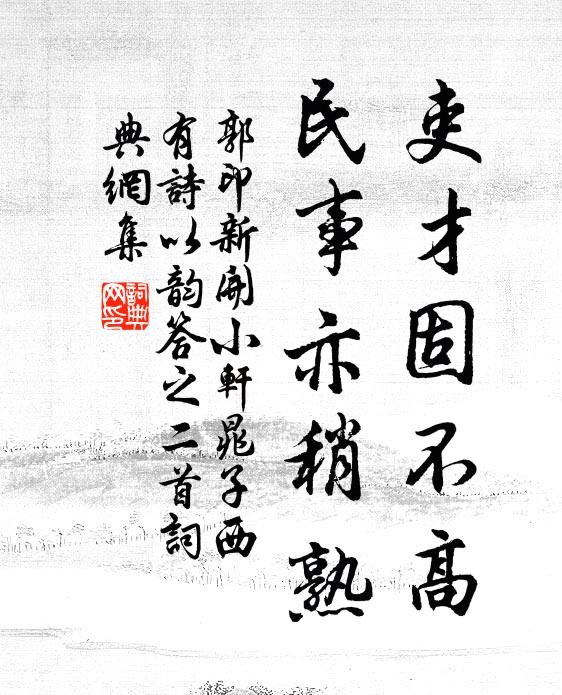 吏才固不高
民事亦稍熟
郭印新開小軒晁子西
有詩以韵答之二首詞
典網集
詞典
网印